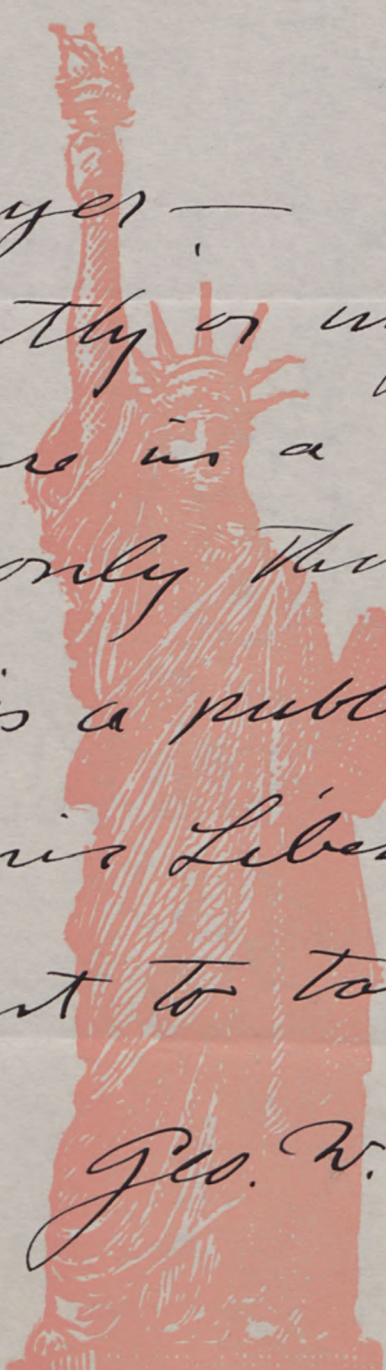 yer —
tly or
re is a
only
is a publ
Liber
to ta
Geo. W.